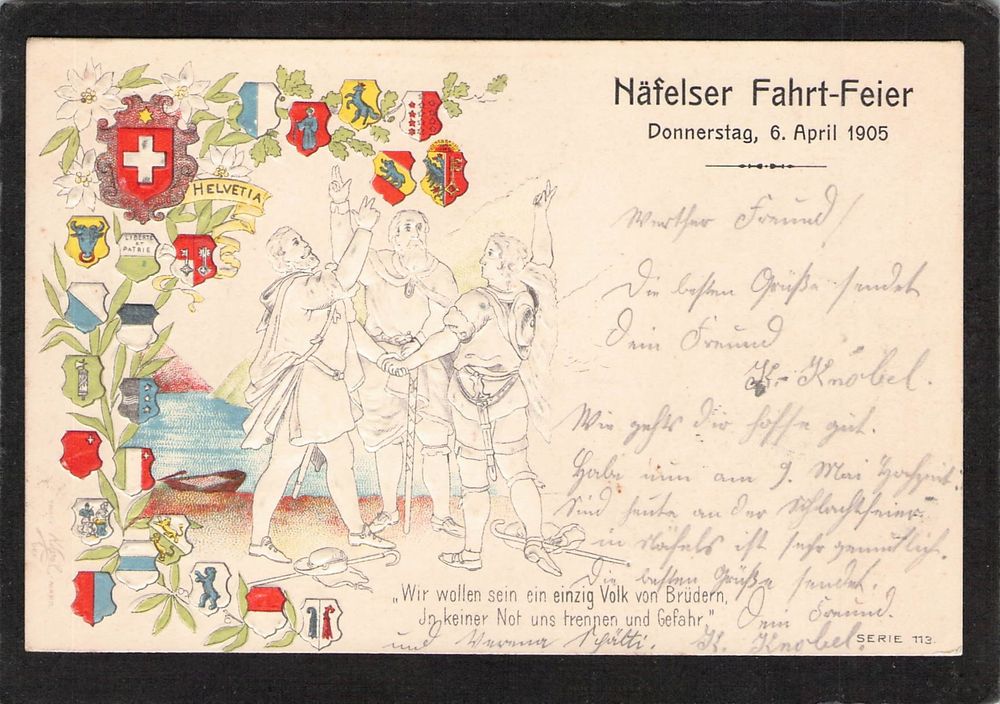 Näfelser Fahrt-Feier
Donnerstag, 6. April 1905
HELVETIA
LIBERTÉ
ET
PATRIE
Werther Freund!
Die besten Grüße sendet
Dein Freund
K. Knobel.
Wie gehts dir hoffe gut.
Habe nun am 9. Mai Hochzeit.
Sind heute an der Schlachtfeier
in Näfels ist sehr gemütlich.
Die besten Grüße sendet.
Dein Freund.
K. Knobel.
und Verena Schätti.
„Wir wollen sein ein einzig Volk von Brüdern,
Jn keiner Not uns trennen und Gefahr."
SERIE 113.